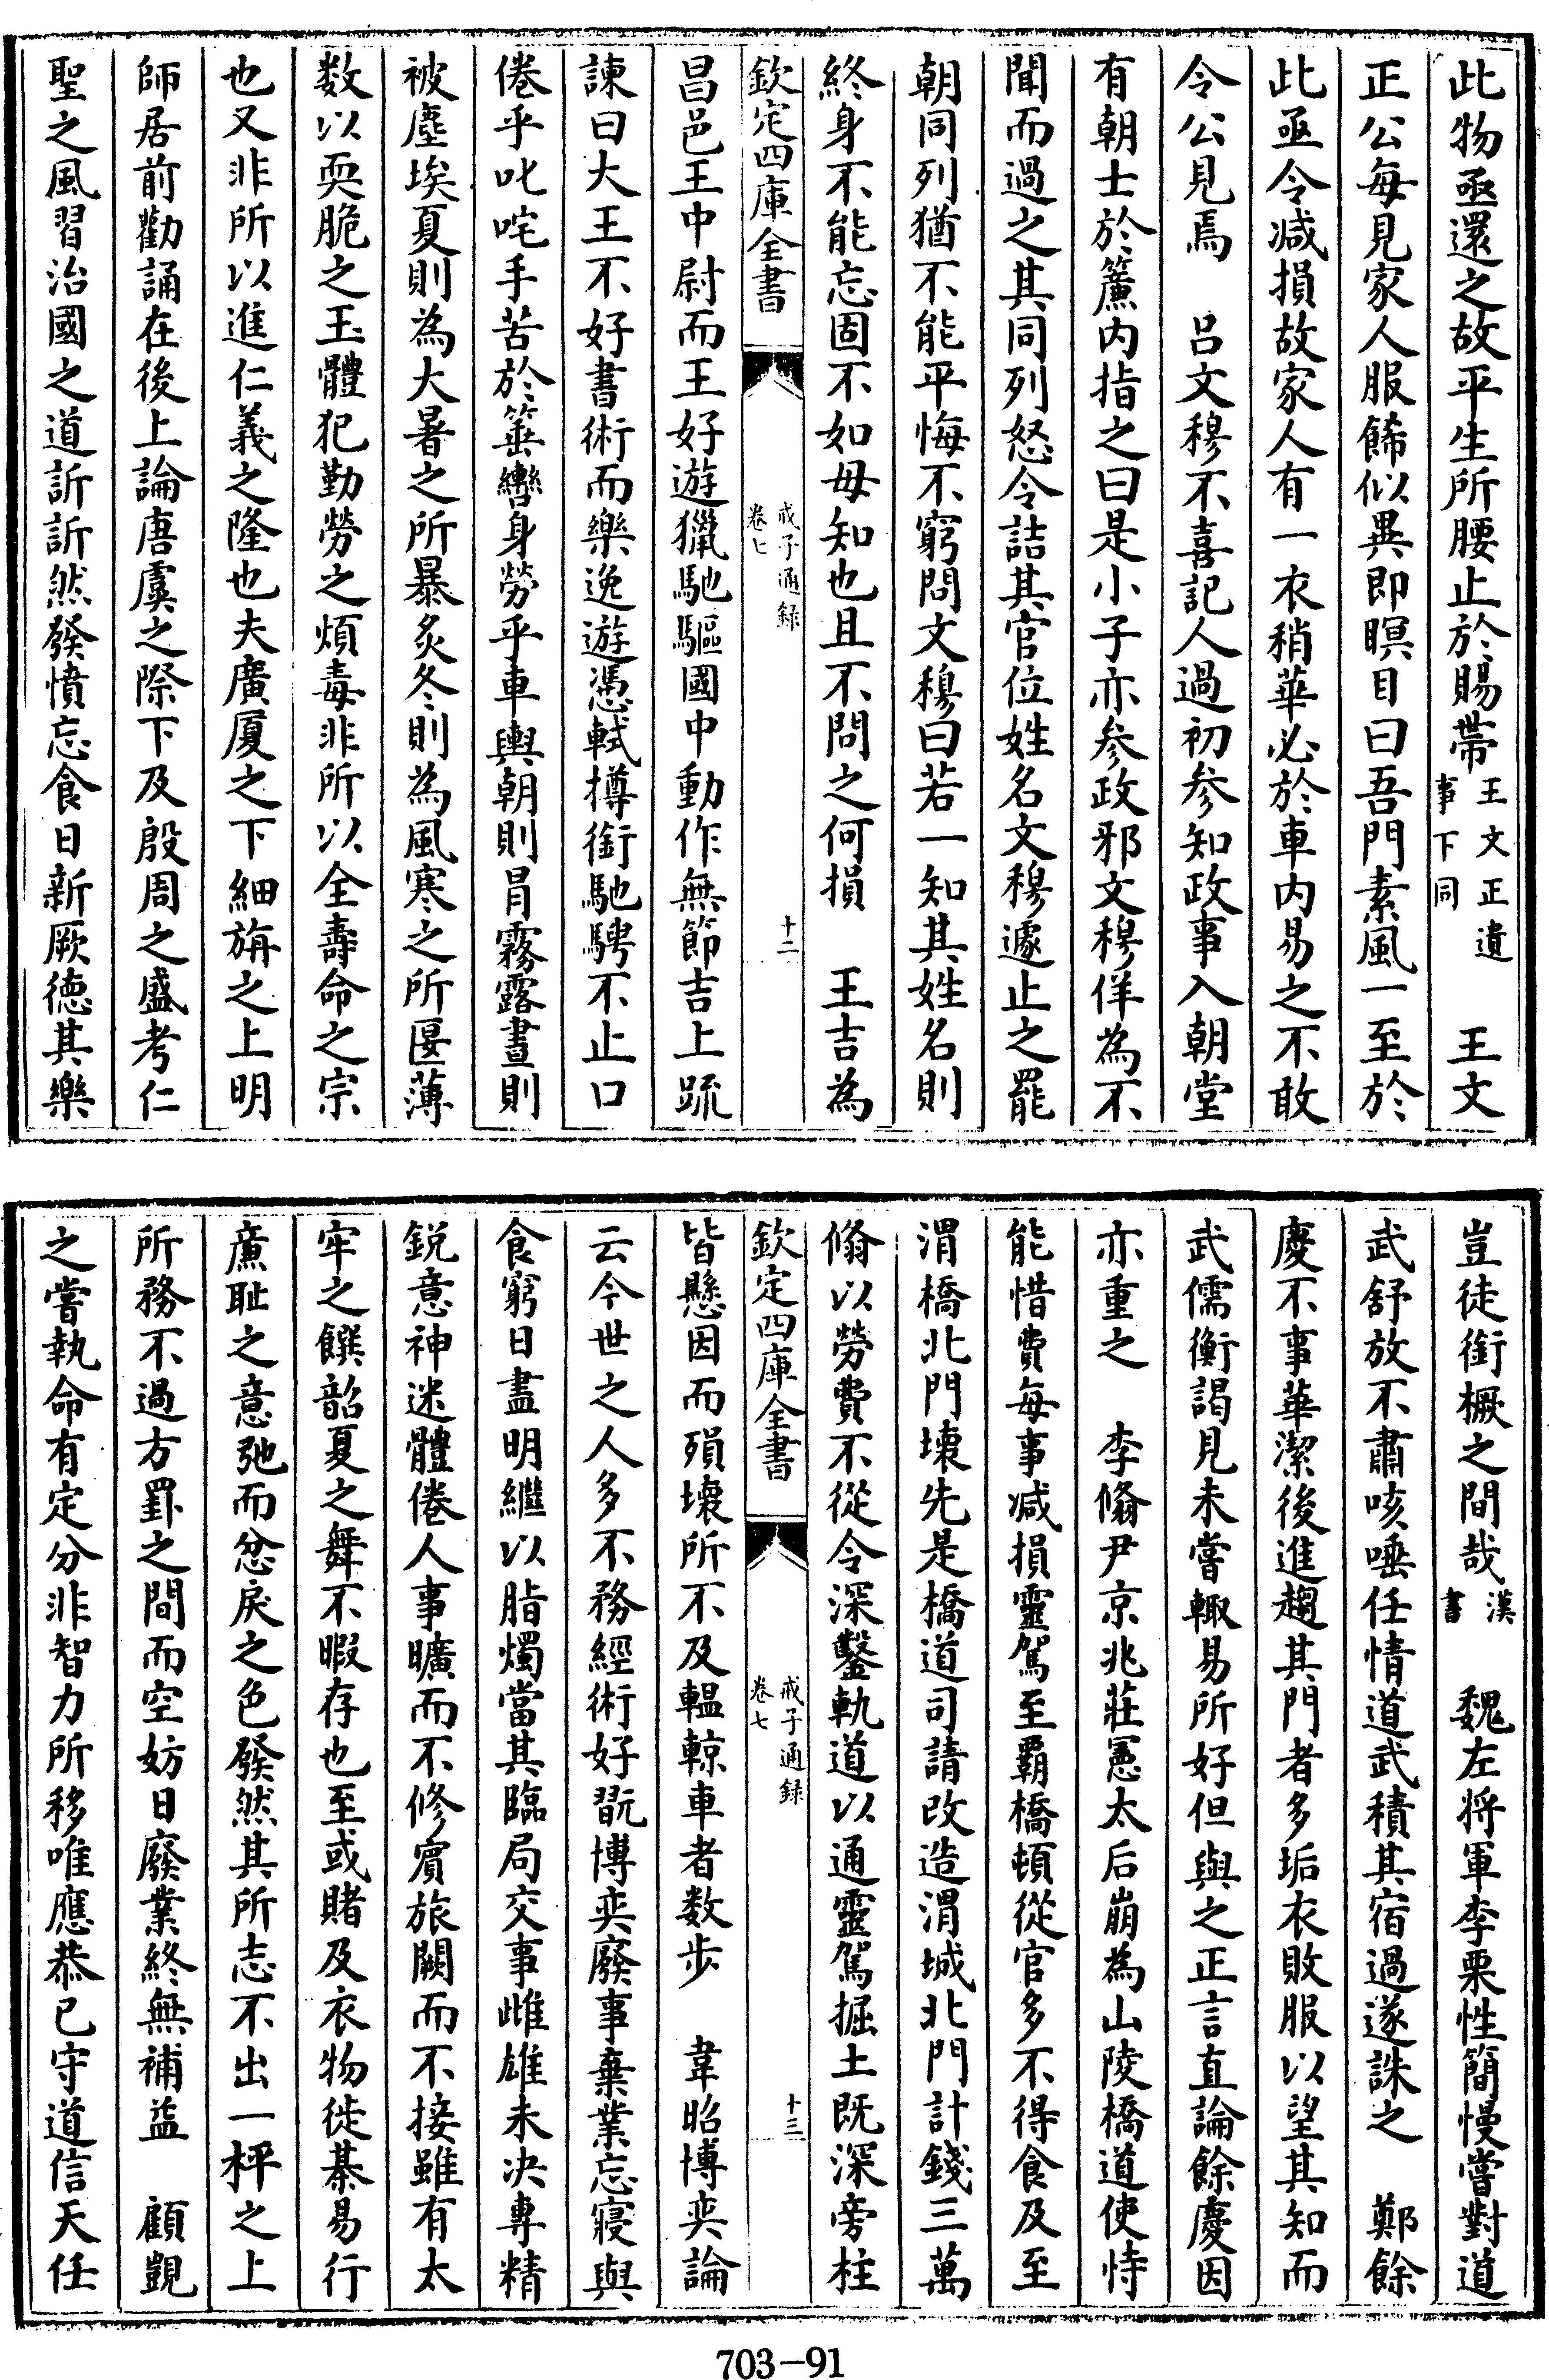 此物亟還之故平生所腰止於賜帶王文正遺事下同　王文
正公每見家人服飾似異即瞑目曰吾門素風一至於
此亟令减損故家人有一衣稍華必於車内易之不敢
令公見焉　吕文穆不喜記人過初參知政事入朝堂
有朝士於簾内指之曰是小子亦參政邪文穆佯為不
聞而過之其同列怒令詰其官位姓名文穆遽止之罷
朝同列猶不能平悔不窮問文穆曰若一知其姓名則
終身不能忘固不如毋知也且不問之何損　王吉為
欽定四庫全書　戒子通録　卷七　十二
昌邑王中尉而王好遊獵馳驅國中動作無節吉上疏
諫曰大王不好書術而樂逸遊憑軾樽銜馳騁不止口
倦乎叱咤手苦於箠轡身勞乎車輿朝則冒霧露晝則
被塵埃夏則為大暑之所暴炙冬則為風寒之所匽薄
数以耎脆之玉體犯勤勞之煩毒非所以全壽命之宗
也又非所以進仁義之隆也夫廣厦之下細旃之上明
師居前勸誦在後上論唐虞之際下及殷周之盛考仁
聖之風習治國之道訢訢然發憤忘食日新厥徳其樂
豈徒銜橛之間哉漢書　魏左將軍李栗性簡慢嘗對道
武舒放不肅咳唾任情道武積其宿過遂誅之　鄭餘
慶不事華潔後進趨其門者多垢衣敗服以望其知而
武儒衡謁見未嘗輙易所好但與之正言直論餘慶因
亦重之　李翛尹京兆莊憲太后崩為山陵橋道使恃
能惜費每事减損靈駕至霸橋頓從官多不得食及至
渭橋北門壊先是橋道司請改造渭城北門計錢三萬
翛以勞費不從令深鑿軌道以通靈駕掘土既深旁柱
欽定四庫全書　戒子通録　卷七　十三
皆懸因而殞壊所不及轀輬車者数步　韋昭博奕論
云今世之人多不務經術好翫博奕廢事棄業忘寢與
食窮日盡明繼以脂燭當其臨局交事雌雄未决專精
鋭意神迷體倦人事曠而不修賔旅闕而不接雖有太
牢之饌韶夏之舞不暇存也至或賭及衣物徙棊易行
廉耻之意弛而忿戾之色發然其所志不出一枰之上
所務不過方罫之間而空妨日廢業終無補益　顧覬
之嘗執命有定分非智力所移唯應恭已守道信天任
703-91